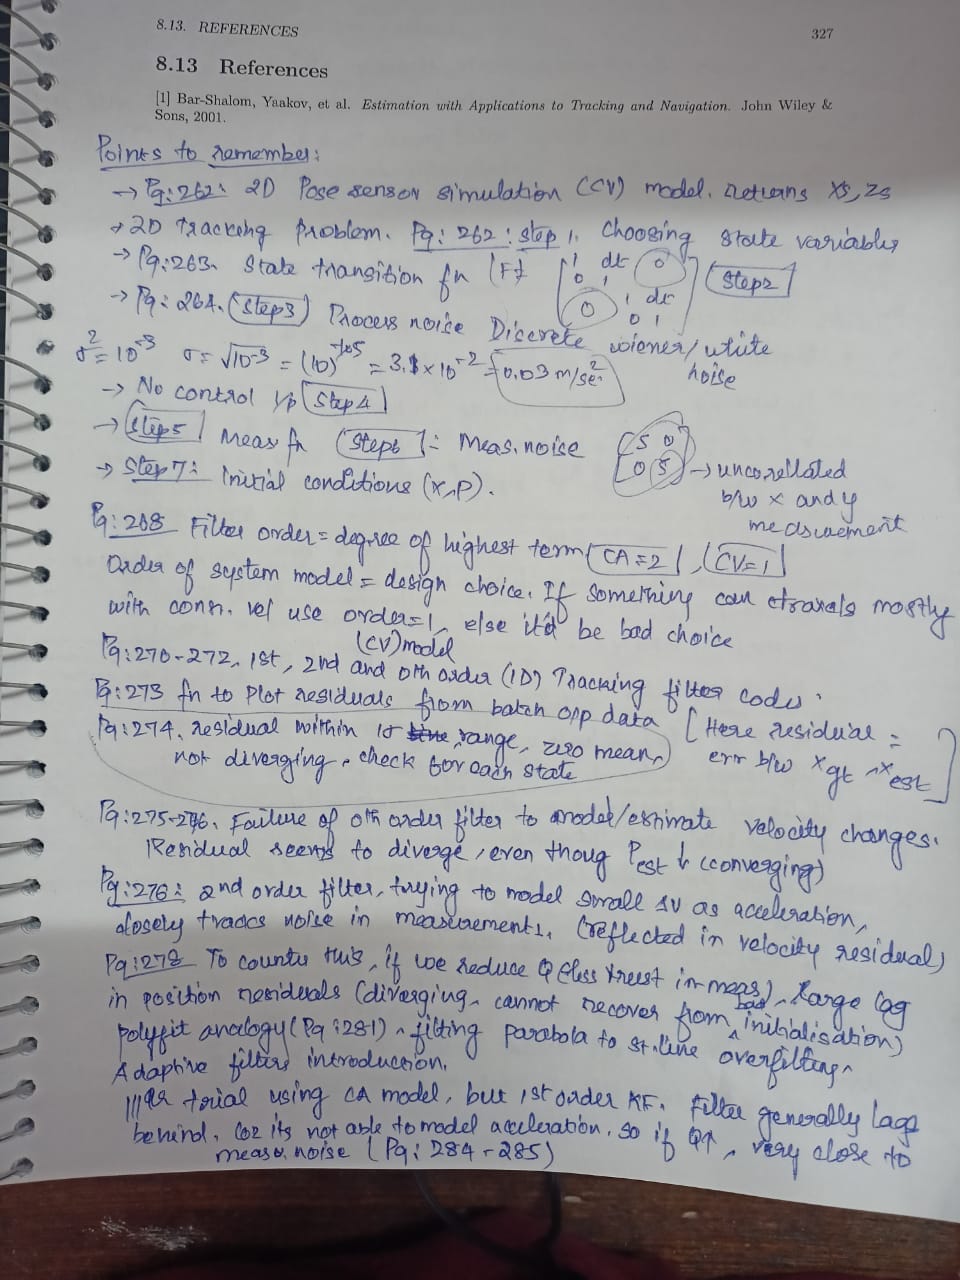 8.13. REFERENCES 327
8.13 References
[1] Bar-Shalom, Yaakov, et al. Estimation with Applications to Tracking and Navigation. John Wiley &
Sons, 2001.
Points to remember:
→ Pg:262: 2D Pose sensor simulation (CV) model. returns xs, zs
→ 2D Tracking Problem. Pg: 262: step 1. Choosing state variables
→ Pg:263. State transition fn (F) [1 dt 0 Step2
0 1
→ Pg: 264. Step3 Process noise Discrete wiener/white noise
0 1 dt
0 1]
σ² = 10⁻³ σ = √10⁻³ = (10)^-1.5 = 3.1 × 10⁻² = 0.03 m/sec²
→ No control i/p Step4
→ Step5 Meas fn Step6 : Meas. noise [5 0
0 5] → uncorellated
b/w x and y
measurement
→ Step7: Initial conditions (x, P).
Pg:268 Filter order = degree of highest term CA=2, CV=1
Order of system model = design choice. If something can travels mostly
with conn. vel use order=1, else it'd be bad choice
(CV) model
Pg:270-272, 1st, 2nd and 0th order (1D) Tracking filter codes.
Pg:273 fn to Plot residuals from batch opp data [Here residual =
err b/w x gt - x est]
Pg:274. residual within 1σ range, zero mean,
not diverging. check for each state
Pg:275-276. Failure of 0th order filter to model/estimate velocity changes.
Residual seems to diverge, even thoug Pest ↓ (converging)
Pg:276: 2nd order filter, trying to model small ΔV as acceleration,
closely tracks noise in measurements. (reflected in velocity residual)
Pg:278 To counter this, if we reduce Q (less trust in meas), large lag
in position residuals (diverging, cannot recover from bad initialisation)
Polyfit analogy (Pg:281) fitting parabola to st. line overfitting
Adaptive filters introduction.
lllar trial using CA model, but 1st order KF. Filter generally lags
behind, coz its not able to model acceleration. So if Q↑, very close to
meas. noise (Pg: 284-285)